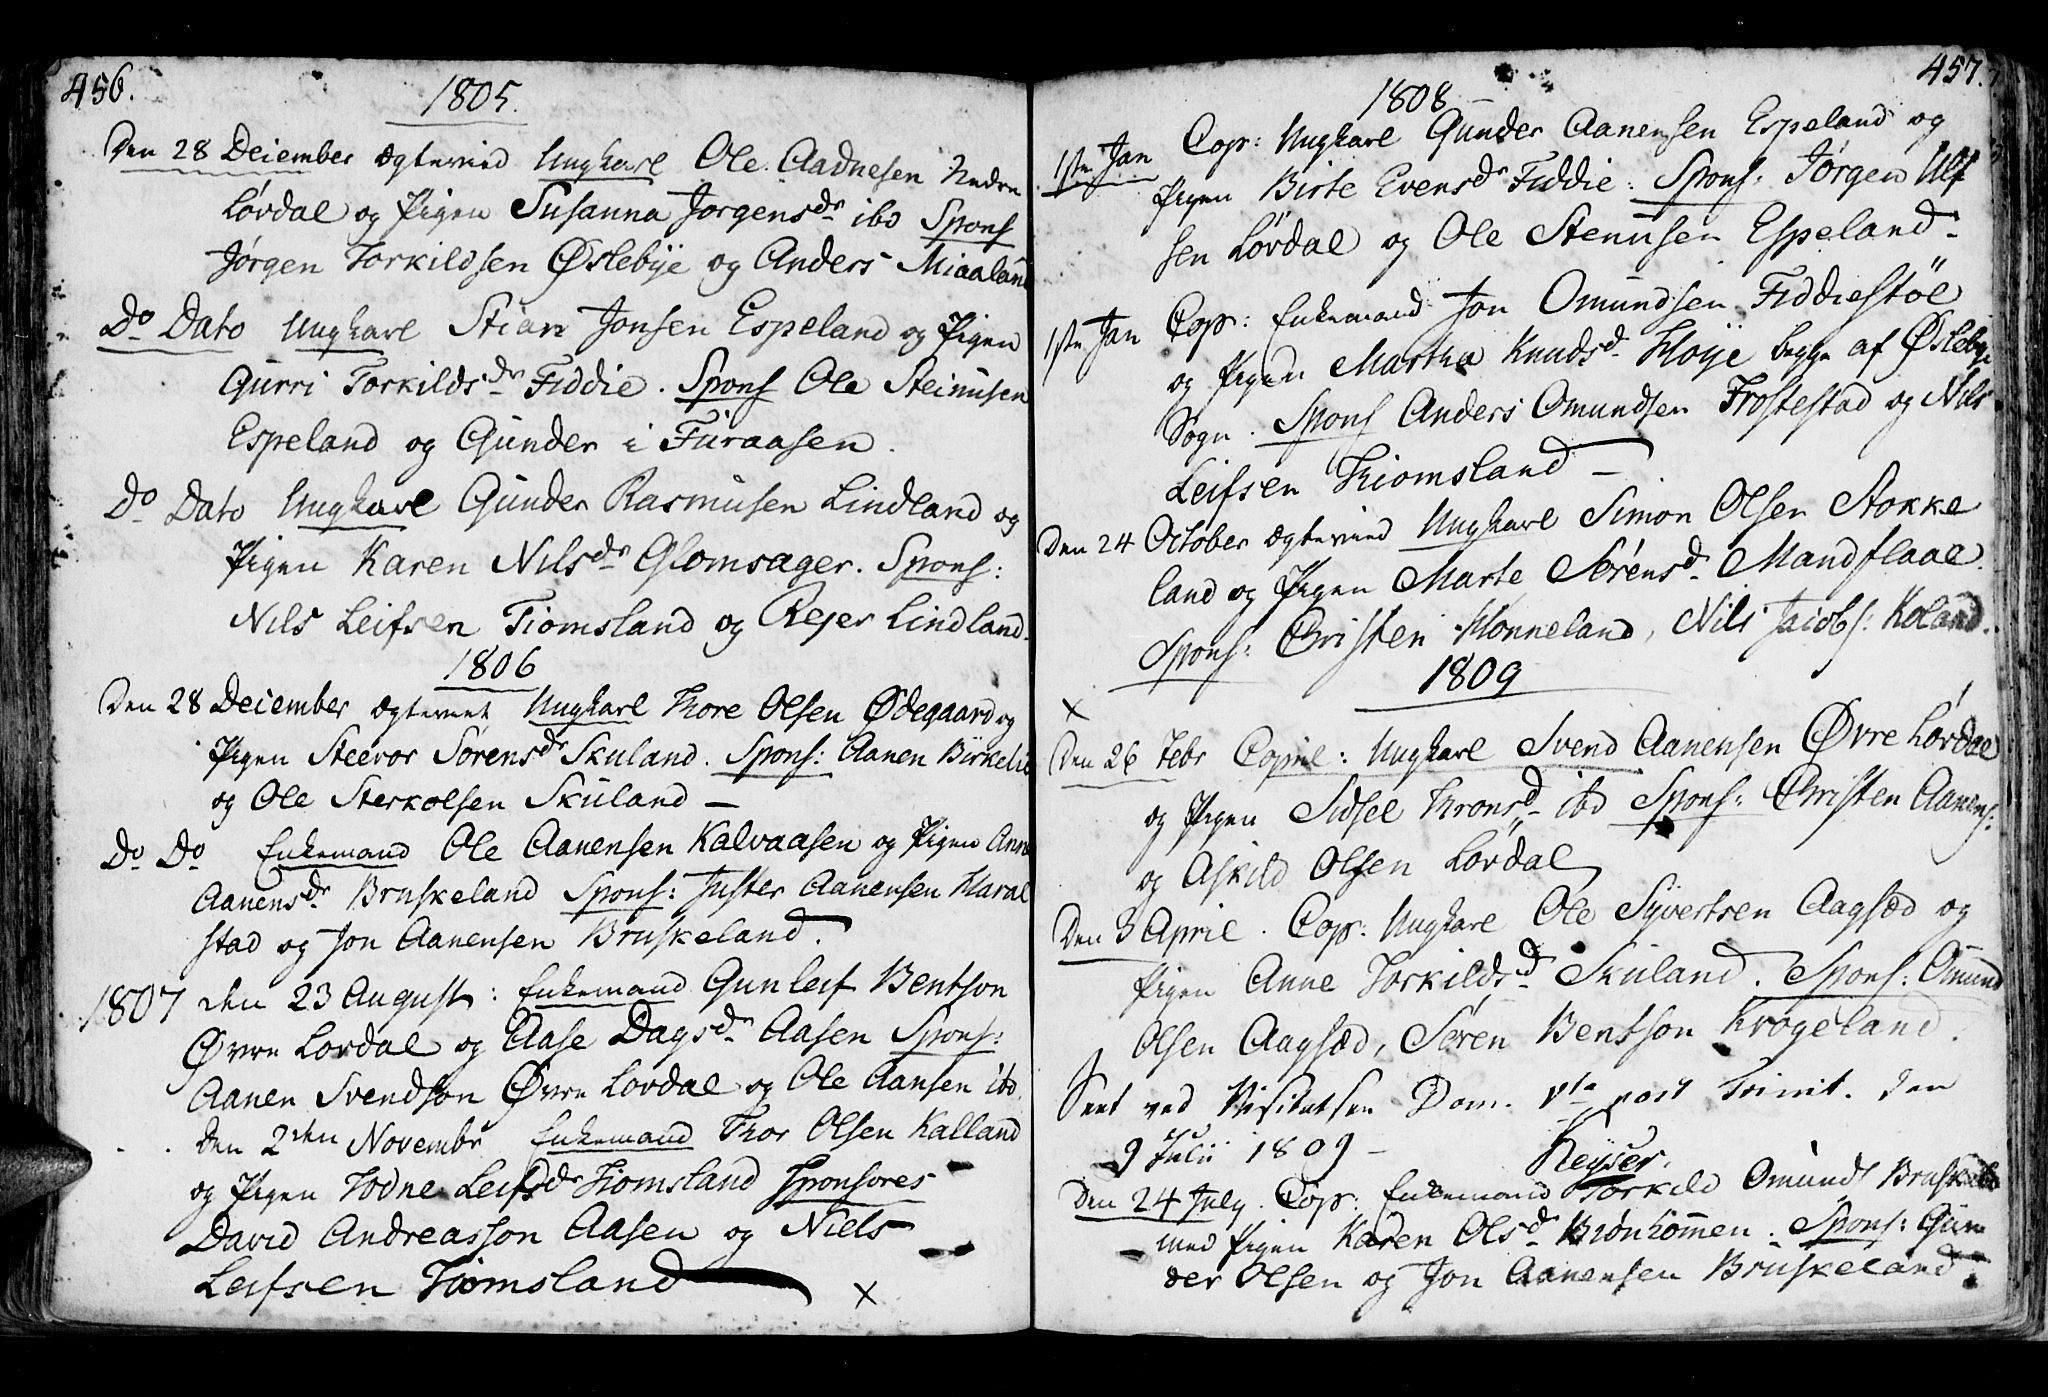 456.
1805.
Den 28 Deiember ægtevied Ungkarl Ole Aadnesen Nedre
Lørdal og Pigen Susanna Jørgensdr ibd Spons
Jørgen Torkildsen Øslebye og Anders Miaaland
Do Dato Ungkarl Stian Jonsen Espeland og Pigen
Gurri Torkildsdr Fiddie. Spons Ole Steinusen
Espeland og Gunder i Furaasen.
Do Dato Ungkarl Gunder Rasmusen Lindland og
Pigen Karen Nilsdr Glomsager. Spons:
Nils Leifsen Tiomsland og Rejer Lindland.
1806
Den 28 Deiember ægteviet Ungkarl Thore Olsen Ødegaard og
Pigen Steevor Sørensdr Skuland. Spons: Aanen Birkelie
og Ole Sterkolsen Skuland –
Do Do Enkemand Ole Aanensen Kalvaasen og Pigen Anne
Aanensdr Bruskeland Spons: Juster Aanensen Haral
stad og Jon Aanensen Bruskeland.
1807 den 23 August: Enkemand Gunleif Bentson
Øvre Lordal og Aase Dagsdr Aasen Spons:
Aanen Svendson Øvre Lordal og Ole Aansen ibd.
den 2den Novembr Enkemand Thor Olsen Kalland
og Pigen Todne Leifsdr Tiomsland Sponsores
David Andreasson Aasen og Niels
Leifsen Tiomsland
x
457.
1808
1ste Jan Cop: Ungkarl Gunder Aanensen Espeland og
Pigen Birte Evensdr Fiddie: Spons: Jørgen Ulf
sen Lørdal og Ole Stenusen Espeland –
1ste Jan Cop: Enkemand Jon Omundsen Fiddiestöl
og Pigen Martha Knudsd. Høije begge af Øslebye
Sogn. Spons Anders Omundsen Frostestad og Nils
Leifsen Kiomsland –
Den 24 October ægteviied Ungkarl Simon Olsen Stokke
land og Pigen Marte Sørensd. Mandflaae.
Spons: Christen Honneland, Nils Jacobs: Koland.
1809
x
Den 26 Febr Copul: Ungkarl Svend Aanensen Øvre Lørdal
og Pigen Sidsel Thronsd – ibd Spons: Christen Aanens:
og Askild Olsen Lordal
Den 3 April. Cop: Ungkarl Ole Syvertsen Aagsæd og
Pigen Anne Torkildsd. Skuland. Spons: Omund
Olsen Aagsæd, Søren Bentson Krogeland.
Seet ved Visitatsen Dom. Vta post Trinit. den
9 Julii 1809 –
Keyser.
Den 24 July. Cop: Enkemand Torkild Omunds Bruskeland
med Pigen Karen Olsd. Biönkömmen. Spons: Gun
der Olsen og Jon Aanensen Bruskeland.